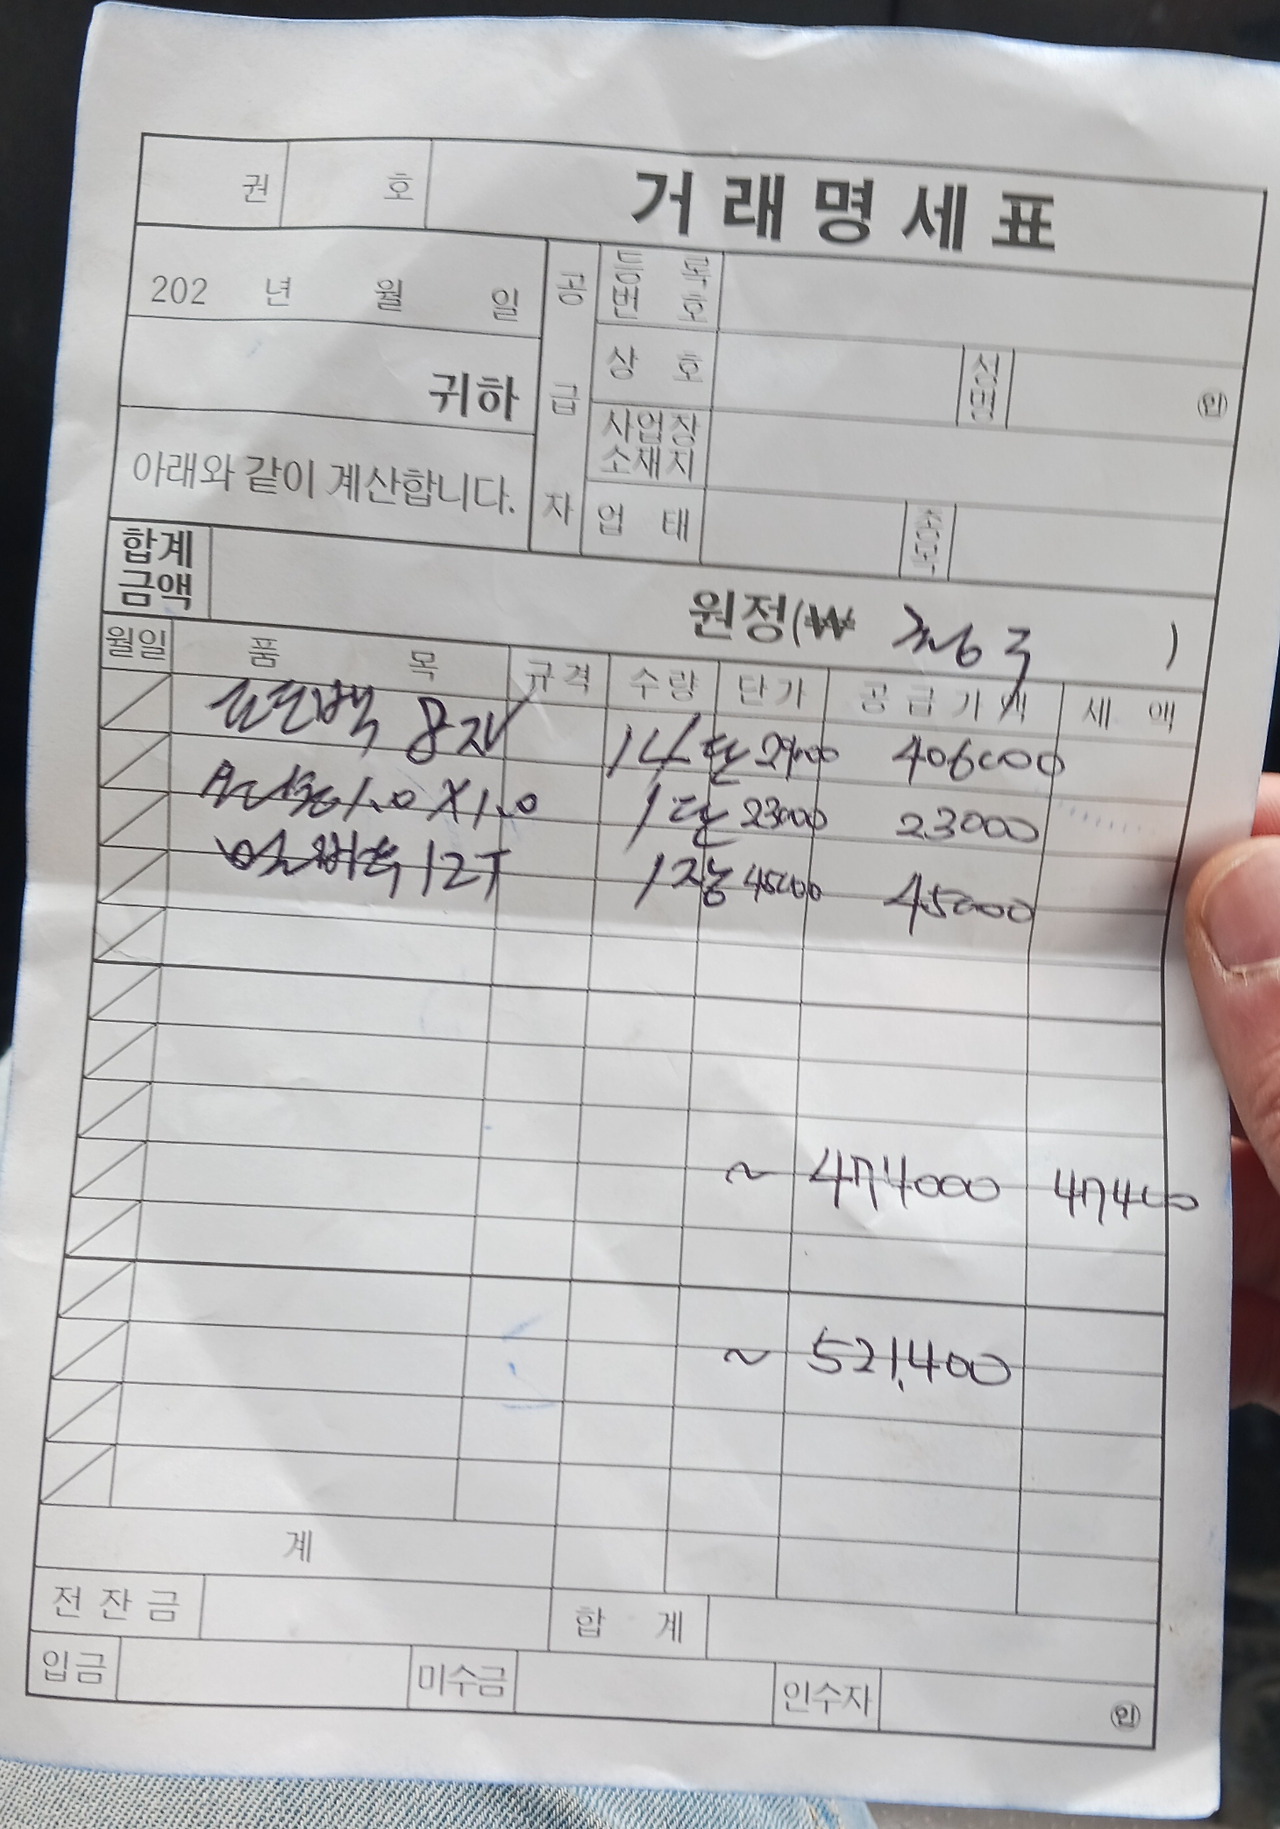 권 호 거래명세표
202 년 월 일
귀하
아래와 같이 계산합니다.
공급자
등록번호
상호 성명 ㊞
사업장소재지
업태 종목
합계금액 원정(₩ 청구 )
월일 품목 규격 수량 단가 공급가액 세액
8자 14단 29000 406000
1.0X1.0 1단 23000 23000
12T 1장 45000 45000
~ 474000 47400
~ 521,400
계
전잔금 합계
입금 미수금 인수자 ㊞